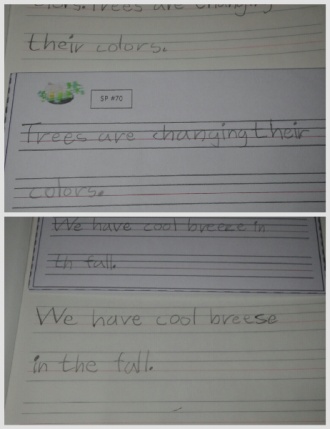 Trees are changing
their colors.
SP #70
Trees are changing their
colors.
We have cool breeze in
th fall.
We have cool breese
in the fall.